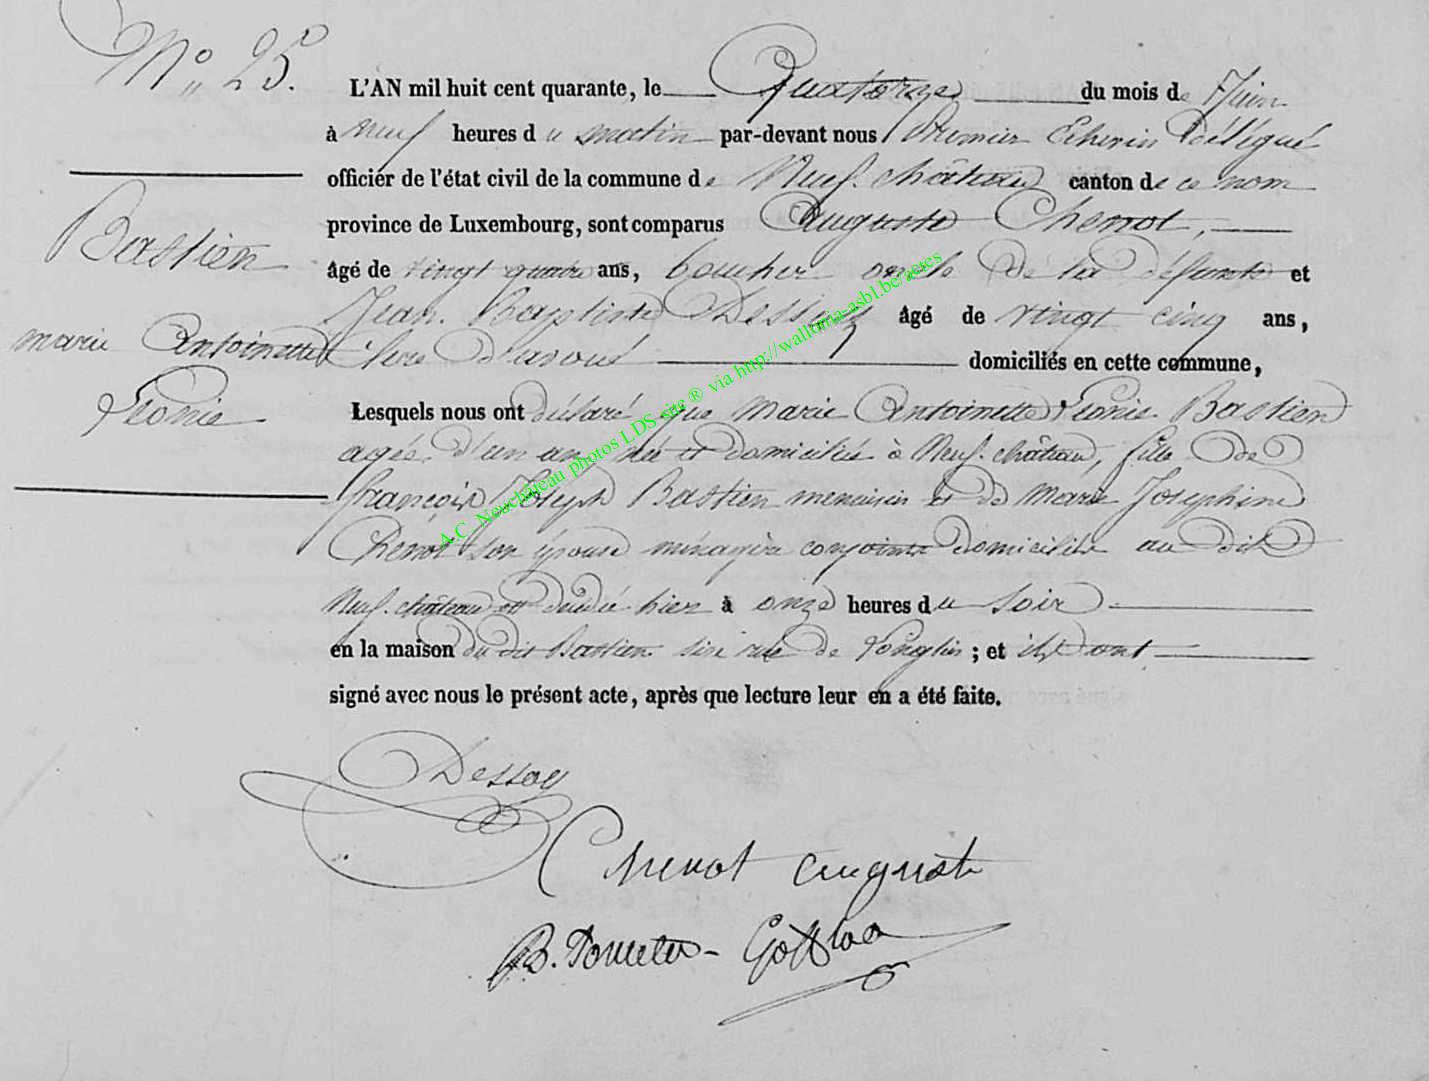 N° 25.
L'AN mil huit cent quarante, le Quatorze du mois de Juin
à Neuf heures du matin par-devant nous Premier Echevin Délégué
officiér de l'état civil de la commune de Neuf-château canton de ce nom
province de Luxembourg, sont comparus Auguste Chenot,
âgé de vingt quatre ans, boucher oncle de la défunte et
Jean-Baptiste Dessoy âgé de vingt cinq ans,
Clerc d'avoué domiciliés en cette commune,
Lesquels nous ont déclaré que Marie Antoinette Léonie Bastien
agée d'un an, née et domiciliée à Neuf-château, fille de
françois Joseph Bastien menuisier et de Marie Josephine
Chenot son épouse ménagère conjoints domiciliés au dit
Neuf-château est décédée hier à onze heures du soir
en la maison du dit Bastien sise rue de Longlier ; et ils ont
signé avec nous le présent acte, après que lecture leur en a été faite.
Bastien
marie Antoinette
Léonie
Dessoy
Chenot auguste
A.C. Neuchâteau photos LDS-site® via http://wallonia-asbl.be/actes